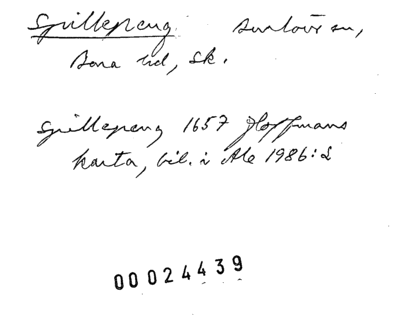 Spillepeng Burlövs sn,
Bara hd, Sk.
Spillepeng 1657 Hoffmans
karta, bil. i Ale 1986:2
00024439